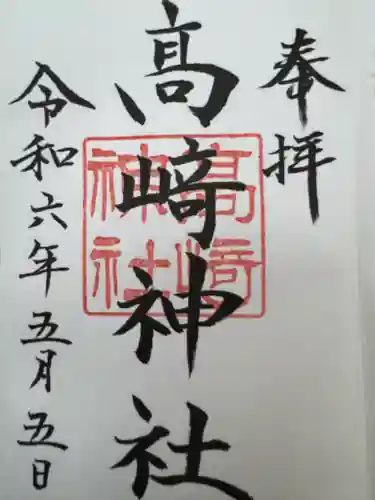 奉拝
高﨑神社
高﨑
神社
令和六年五月五日